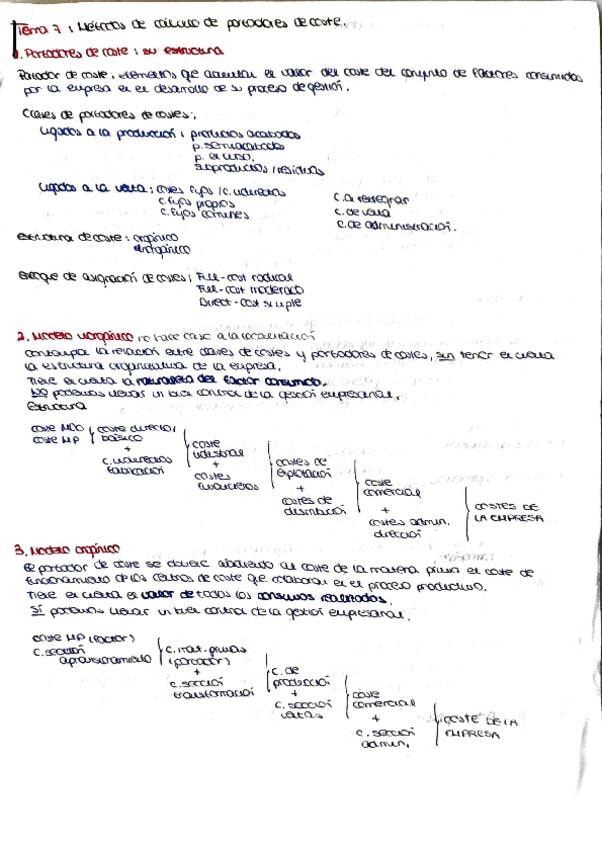 Tema 7: Métodos de cálculo de portadores de coste.
1. Portadores de coste: su estructura
Portador de coste: elementos que acumulan el valor del coste del conjunto de factores consumidos
por la empresa en el desarrollo de su proceso de gestión.
Clases de portadores de costes:
Ligados a la producción: productos acabados
p. semiacabados
p. en curso.
subproductos / residuos
Ligados a la venta: costes fijos / c. indirectos
c. fijos propios
c. fijos comunes
c. a reintegrar
c. de venta
c. de administración.
Estructura de coste: orgánico
inorgánico
Enfoque de asignación de costes: Full-cost radical
Full-cost moderado
Direct-cost simple
2. Modelo inorgánico no hace caso a la localización
Contempla la relación entre clases de costes y portadores de costes, sin tener en cuenta
la estructura organizativa de la empresa.
Tiene en cuenta la naturaleza del factor consumido.
NO podemos llevar un buen control de la gestión empresarial.
Estructura
coste MOD
coste MP
coste directo /
básico
+
c. indirectos
fabricación
coste
industrial
+
costes
financieros
costes de
explotación
+
costes de
distribución
coste
comercial
+
costes admin.
dirección
COSTES DE
LA EMPRESA
3. Modelo orgánico
El portador de coste se obtiene añadiendo al coste de la materia prima el coste de
funcionamiento de los centros de coste que colaboran en el proceso productivo.
Tiene en cuenta el valor de todos los consumos realizados.
SÍ podemos llevar un buen control de la gestión empresarial.
coste MP (factor)
c. sección
aprovisionamiento
c. mat. primas
(portador)
+
c. sección
transformación
c. de
producción
+
c. sección
ventas
coste
comercial
+
c. sección
admin.
COSTE DE LA
EMPRESA